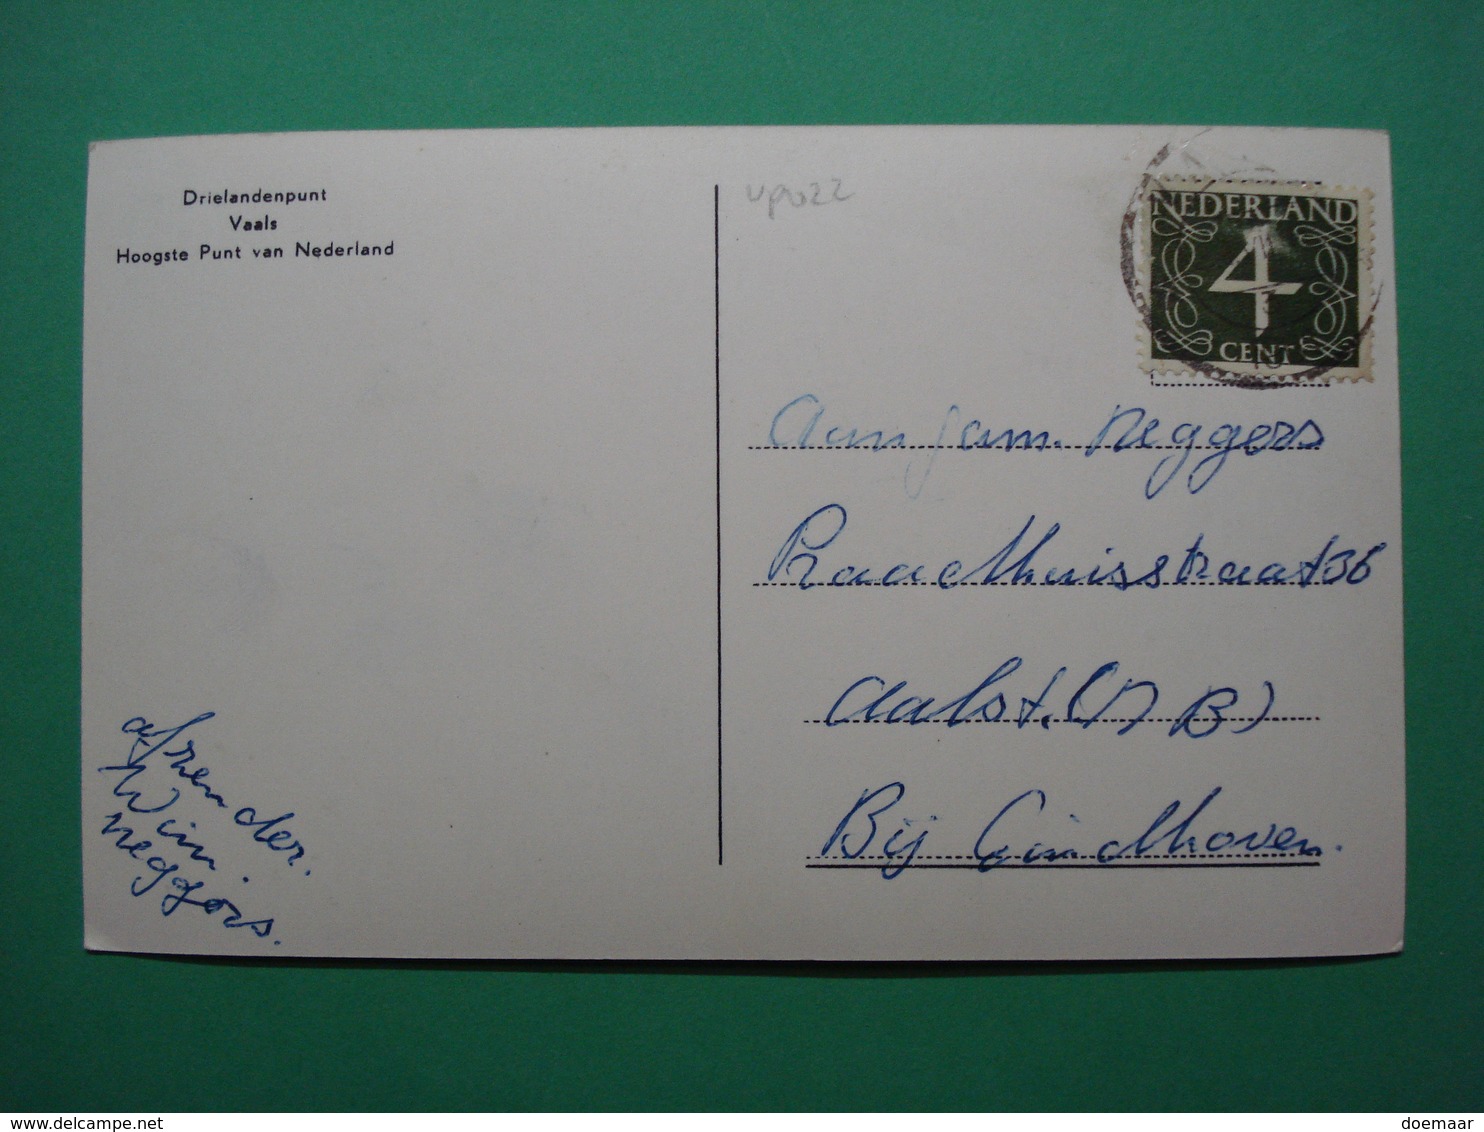 Drielandenpunt
Vaals
Hoogste Punt van Nederland
NEDERLAND
4
CENT
Aan fam. Neggers
Raadhuisstraat 36
Aalst. (N B)
Bij Eindhoven.
afzender.
Wim.
Neggers.
© www.delcampe.net
doemaar